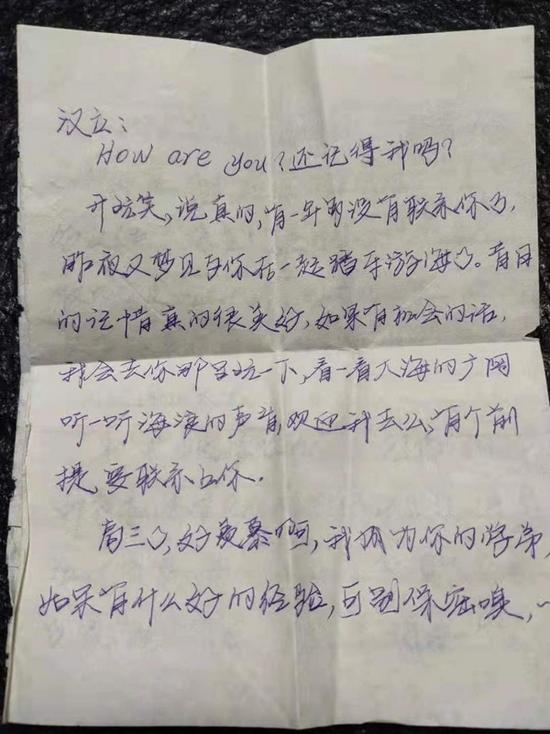 汉立:
How are you?还记得我吗?
开玩笑,说真的,有一年多没有联系你了,
昨夜又梦见与你在一起踏车游海口。昔日
的记忆真的很美好,如果有机会的话,
我会去你那里玩一下,看一看大海的广阔
听一听海浪的声音,欢迎我去么,有个前
提要联系上你.
高三了,好羡慕啊,我成为你的学弟,
如果有什么好的经验,可别保密噢,~